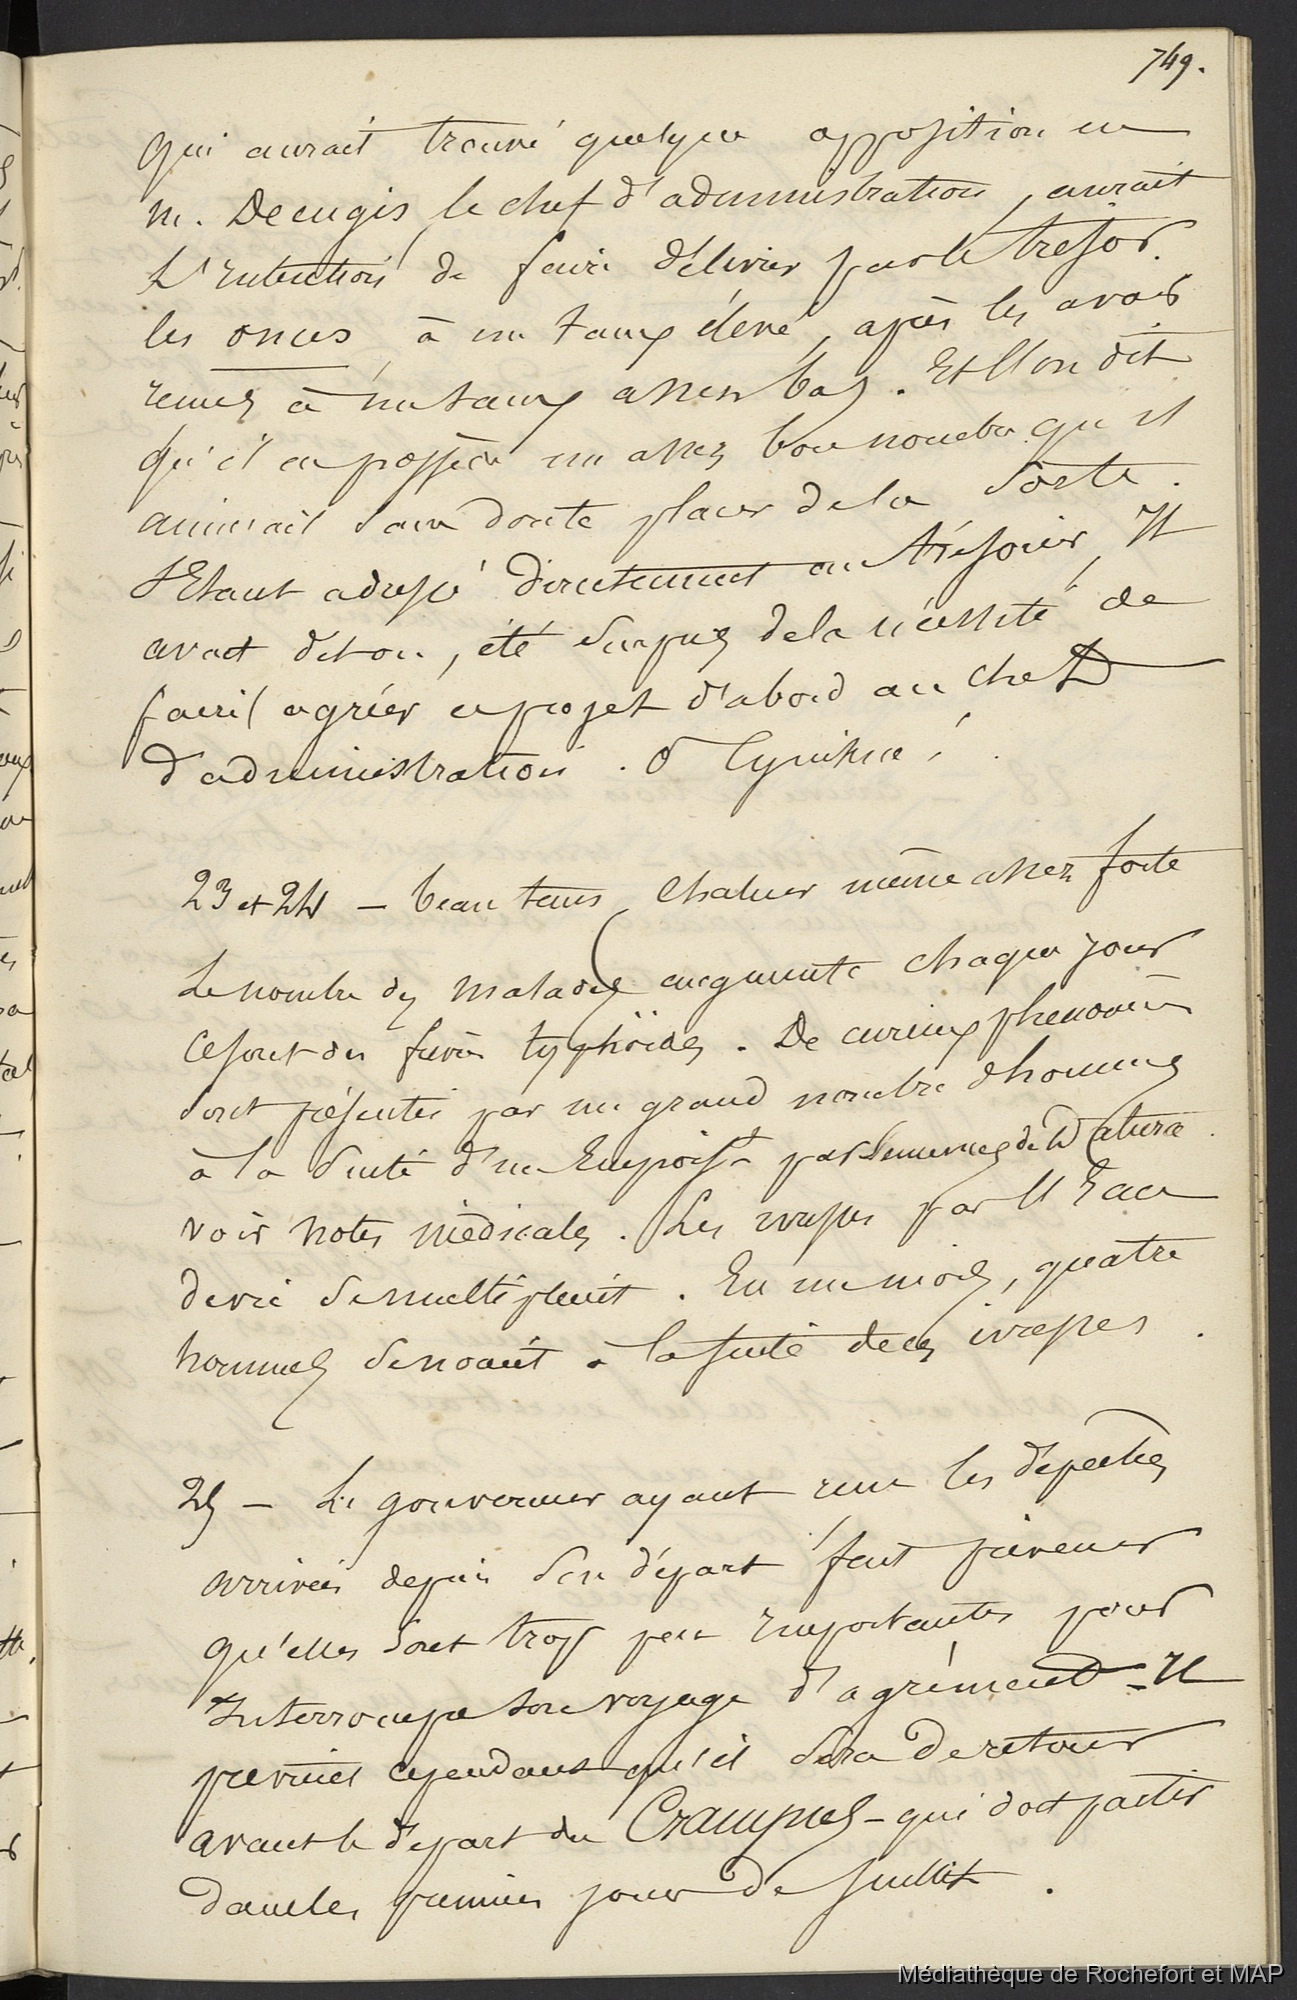 749.
qui aurait trouvé quelque opposition en
M. Decugis le chef d'administration, aurait
L'Intention de faire délivrer par le tresor
les onces à un taux élevé, après les avoir
remis à un taux assez bas. Et l'on dit
qu'il en possède un assez bon nombre qu'il
aimerait sans doute placer de la sorte.
S'Etant adressé directement au trésorier, Il
avait dit on, été surpris de la nécessité de
faire agréer ce projet d'abord au chef
d'administration. O
23 et 24 - beau tems, chaleur même assez forte
Le nombre des malades augmente chaque jour
ce sont des fievres typhöides. De curieux phenomènes
sont présentés par un grand nombre d'hommes
à la suite d'un Empoist par semences de Datura
voir notes médicales. Les ivresses par l'Eau
de vie se multiplient. En un mois, quatre
hommes se noient à la suite de ces ivresses.
25 - Le gouverneur ayant reçu les dépeches
arrivées depuis son départ fait prévenir
qu'elles sont trop peu Importantes pour
Interrompre son voyage d'agrément - Il
previent cependant qu'il sera de retour
avant le départ du - qui doit partir
dans les premiers jours de Juillet.
Médiathèque de Rochefort et MAP